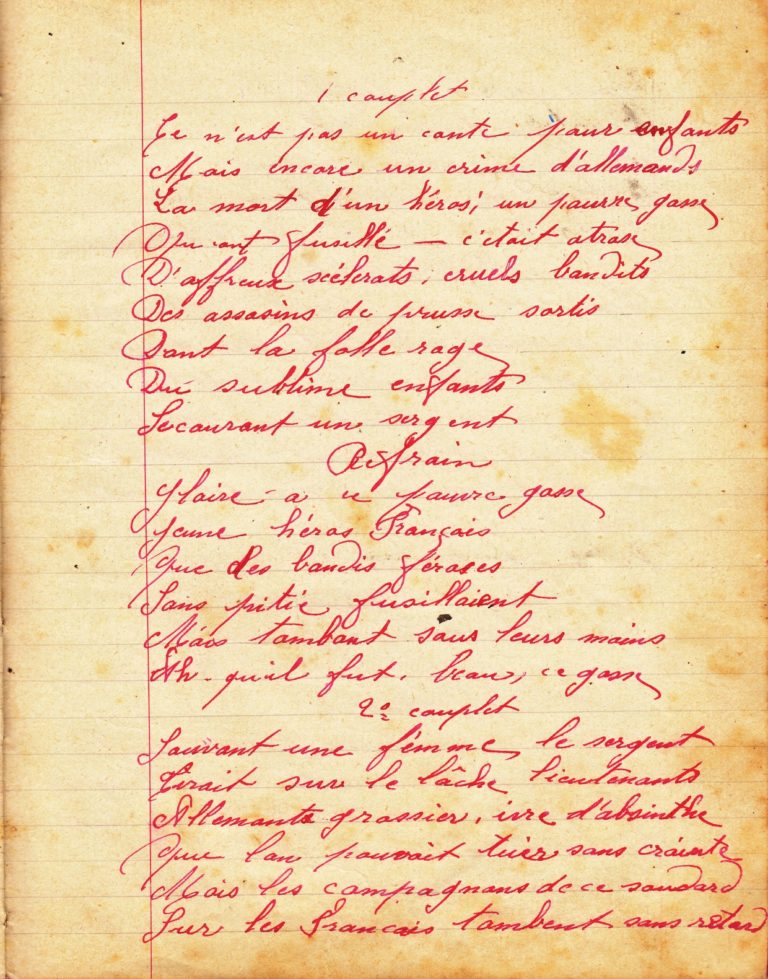 1 couplet
Ce n'est pas un conte pour enfants
Mais encore un crime d'allemands
La mort d'un héros, un pauvre gosse
Qu'ont fusillé — c'était atrose
D'affreux scélerats, cruels bandits
Des assasins de prusse sortis
Dont la folle rage
Du sublime enfants
Secourant un sergent
Refrain
Gloire - a ce pauvre gosse
jeune héros Français
Que des bandis féroces
Sans pitié fusillaient
Mais tombant sous leurs mains
Ah - qu'il fut, beau, ce gosse
2e couplet
Sauvant une fémme, le sergent
Tirait sur le lâche lieutenants
Allemants grossier, ivre d'absinthe
Que l'on pouvait tuer sans crainte
Mais les compagnons de ce soudard
Sur les Francais tombent sans retard